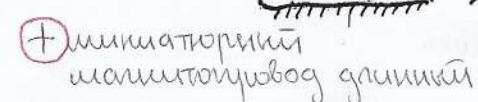 + миниатюрный
магнитопровод длинный